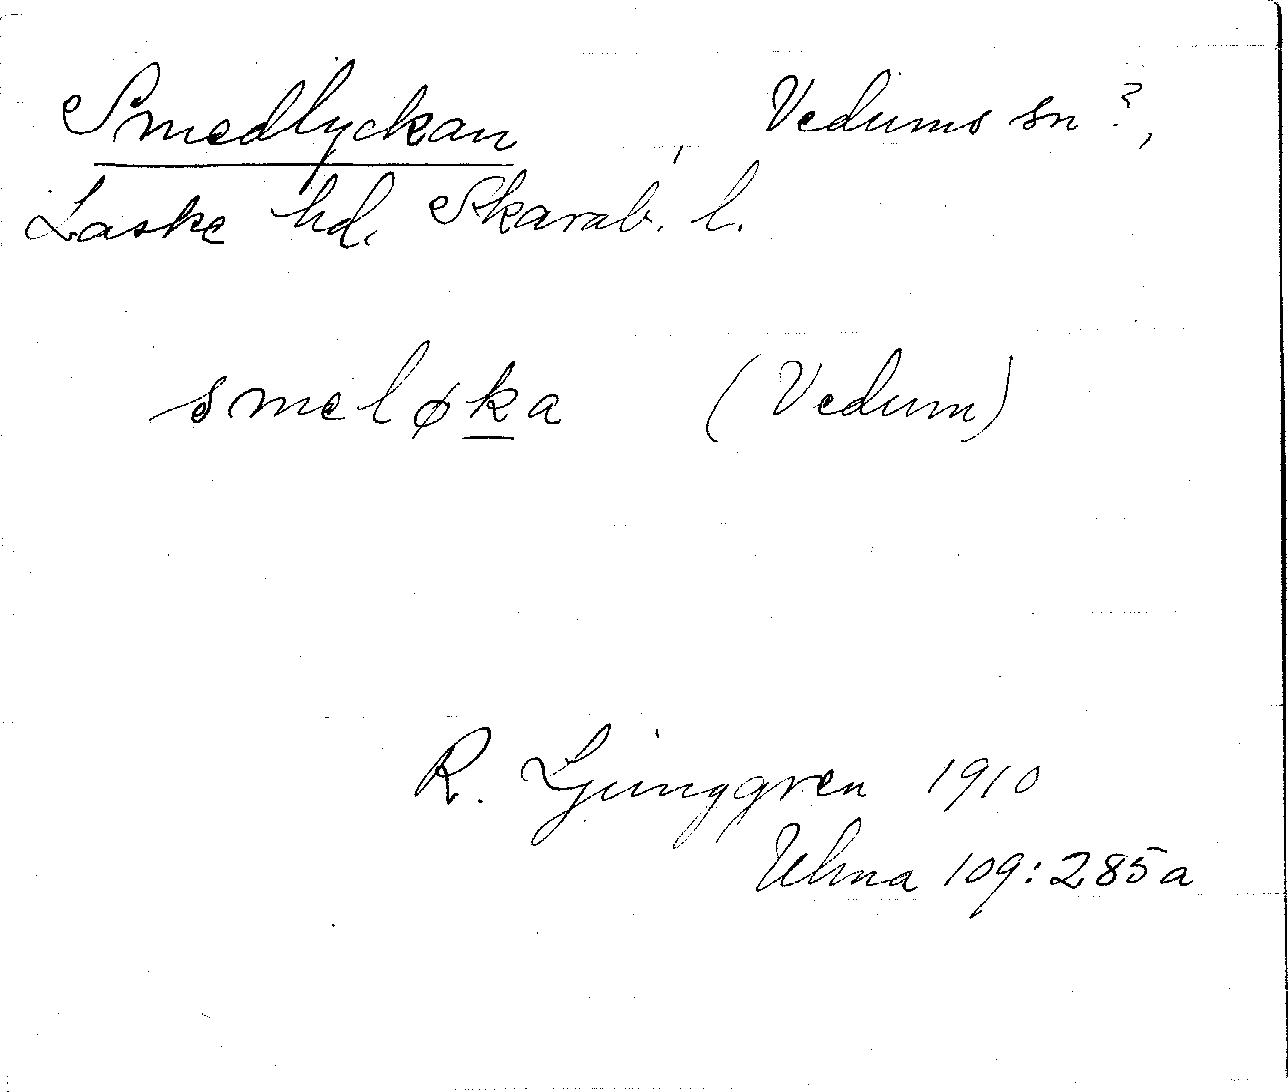 Smedlyckan, Vedums sn?,
Laske hd. Skarab. l.
smeløka (Vedum)
R. Ljunggren 1910
Ulma 109:285a